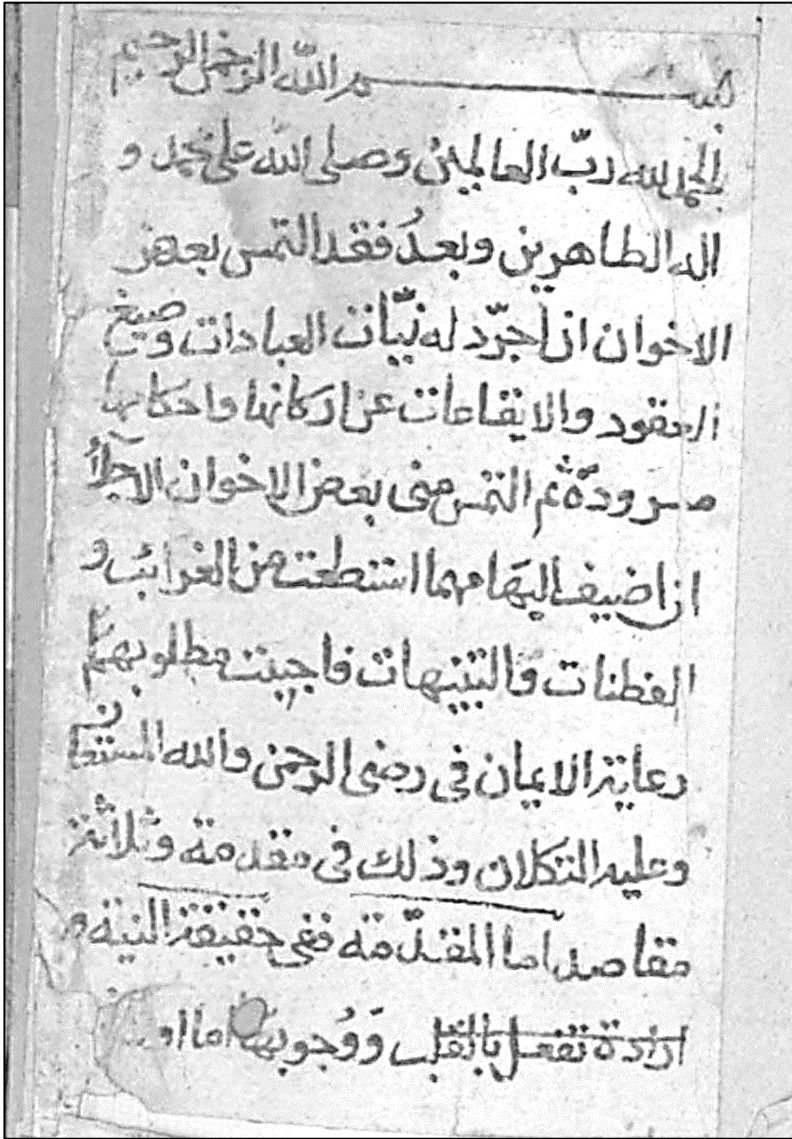 بسم الله الرحمن الرحيم
الحمد لله ربّ العالمين وصلى الله على محمد و
اله الطاهرين وبعدُ فقد التمس بعض
الاخوان ان اجرّد له نيّات العبادات وصيغ
العقود والايقاعات عن اركانها واحكامها
مسرودة ثم التمس منى بعض الاخوان الاجلاّء
ان اضيف اليها مهما استطعت من الغرائب و
الفطنات والتنبيهات فاجبت مطلوبهم
رعاية الايمان فى رضى الرحمن والله المستعان
وعليه التكلان وذلك فى مقدمة وثلاثة
مقاصد اما المقدّمة ففى حقيقة النية و
ارادة تفعل بالقلب وَوُجوبها اما